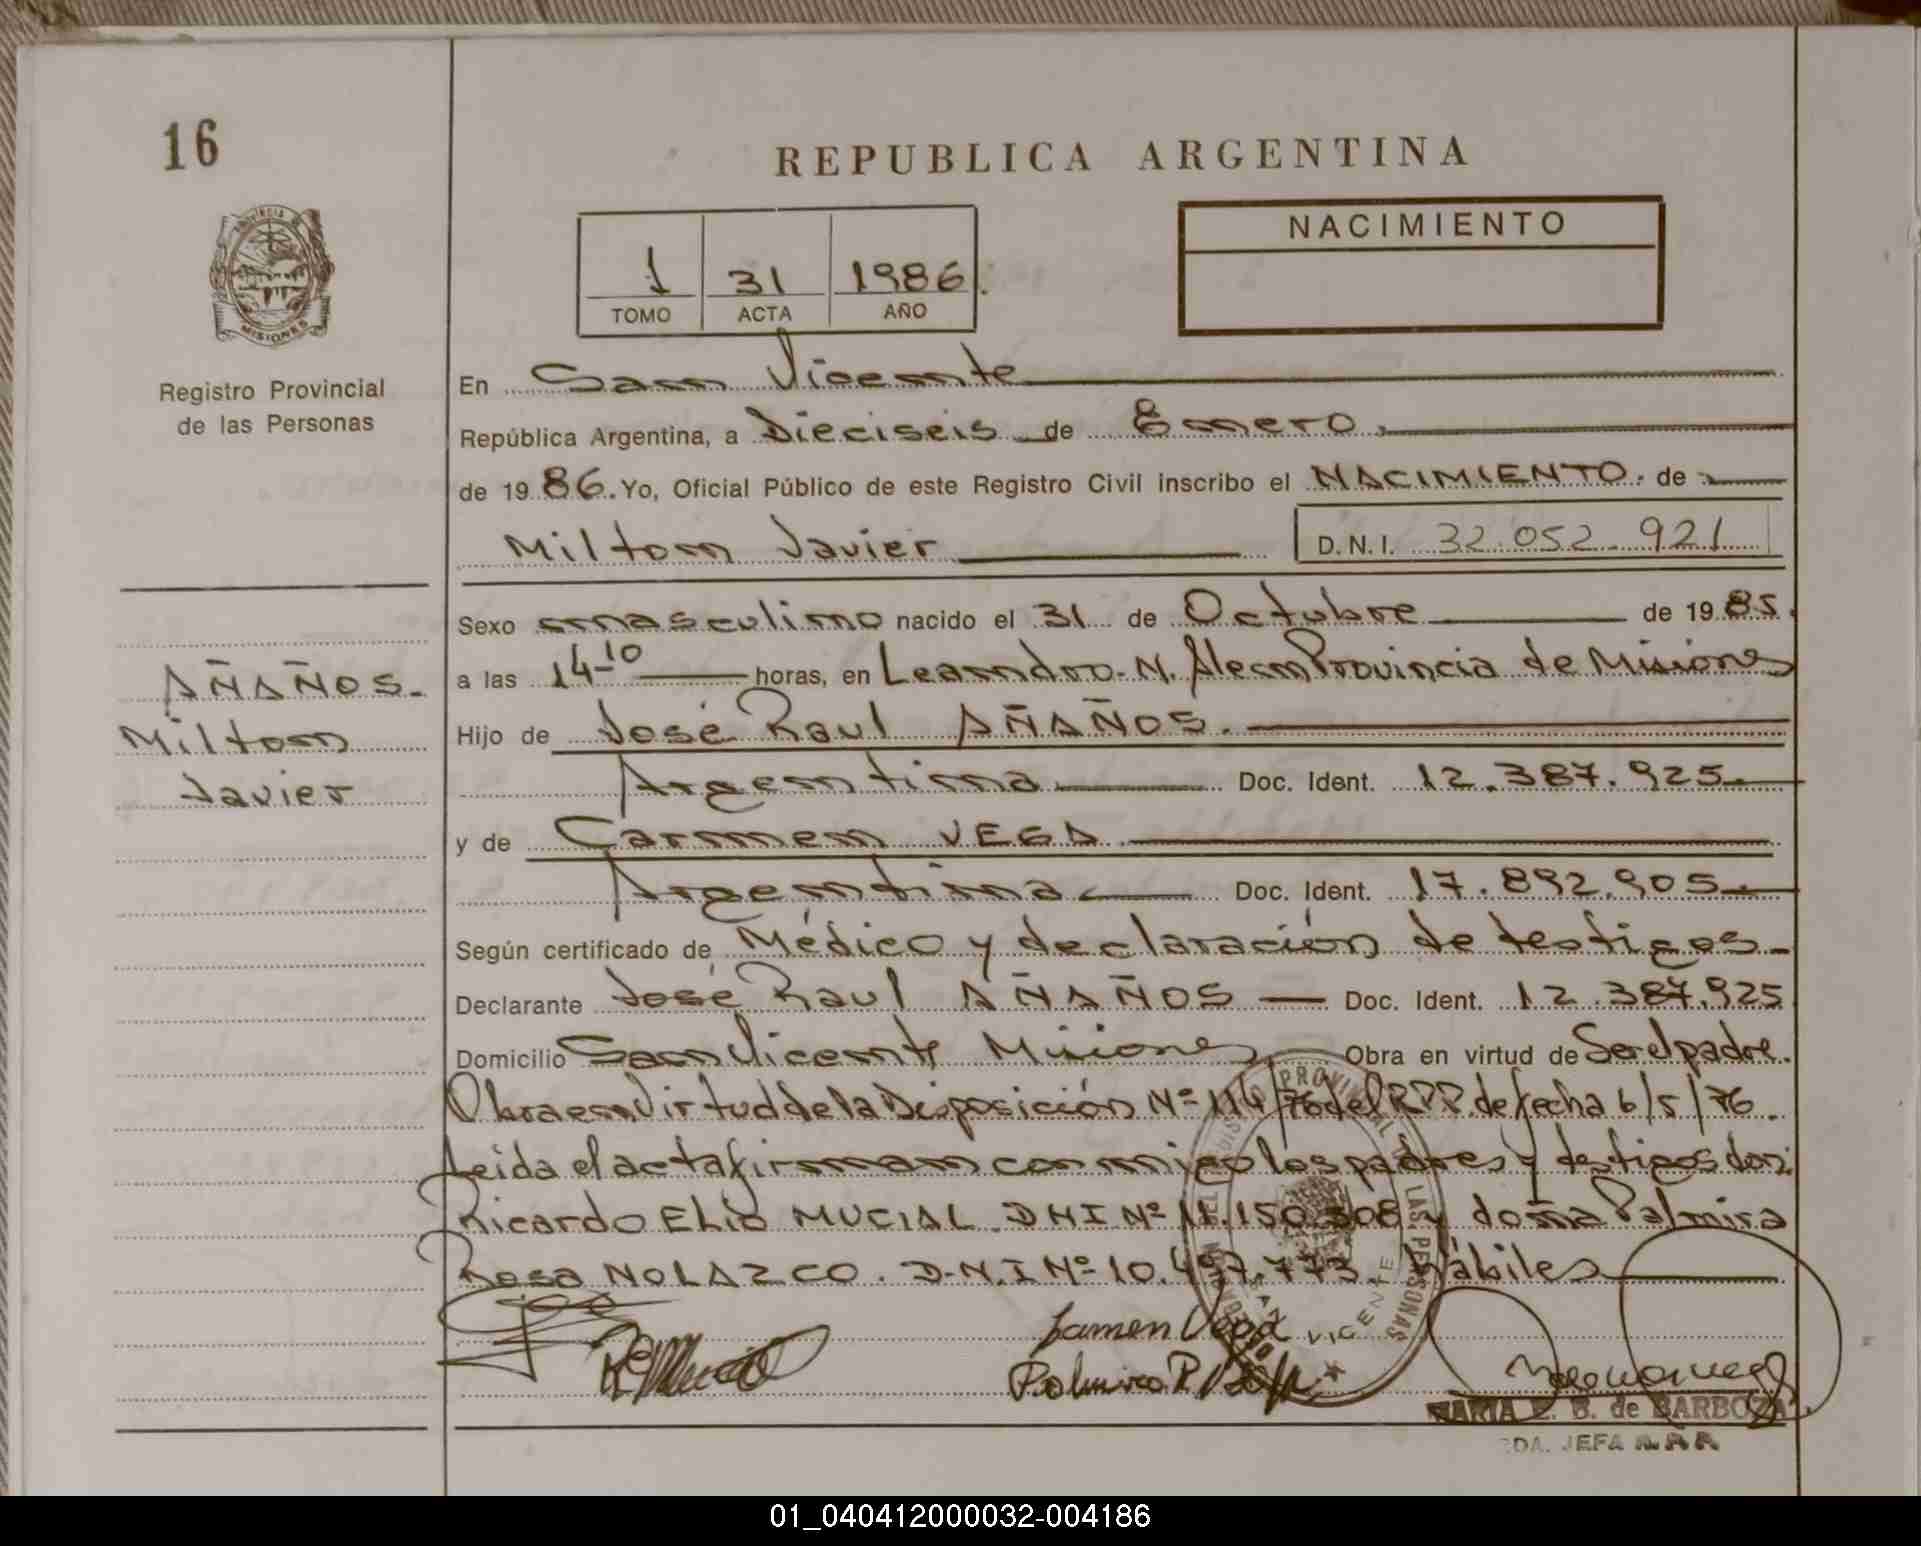 16
REPUBLICA ARGENTINA
PROVINCIA DE
MISIONES
1 31 1986.
TOMO ACTA AÑO
NACIMIENTO
Registro Provincial
de las Personas
En San Vicente
República Argentina, a Dieciseis de Enero.
de 19 86. Yo, Oficial Público de este Registro Civil inscribo el NACIMIENTO. de
Milton Javier D.N.I. 32.052.921
Sexo masculino nacido el 31 de Octubre de 19 85.
a las 14-10 horas, en Leandro. N. Alem Provincia de Misiones
Hijo de José Raul AÑAÑOS.
Argentina Doc. Ident. 12.387.925
y de Carmen VEGA
Argentina Doc. Ident. 17.892.905
Según certificado de Médico y declaración de testigos-
Declarante José Raul AÑAÑOS — Doc. Ident. 12.387.925
Domicilio San Vicente Misiones Obra en virtud de Ser el padre.
Obra en Virtud de la Disposición Nº 114/76 del RPP. de fecha 6/5/76.
Leida el acta firman con migo los padres y testigos don:
Ricardo Elio MUCIAL. DNI Nº 11.150.308 y doña Palmira
Rosa NOLAZCO. D.N.I Nº 10.497.773 Hábiles
AÑAÑOS.
Milton
Javier
REGISTRO PROVINCIAL DE LAS PERSONAS
SAN VICENTE
Carmen Vega
Palmira R
MARIA E. B. de BARBOZA
JEFA
01_040412000032-004186